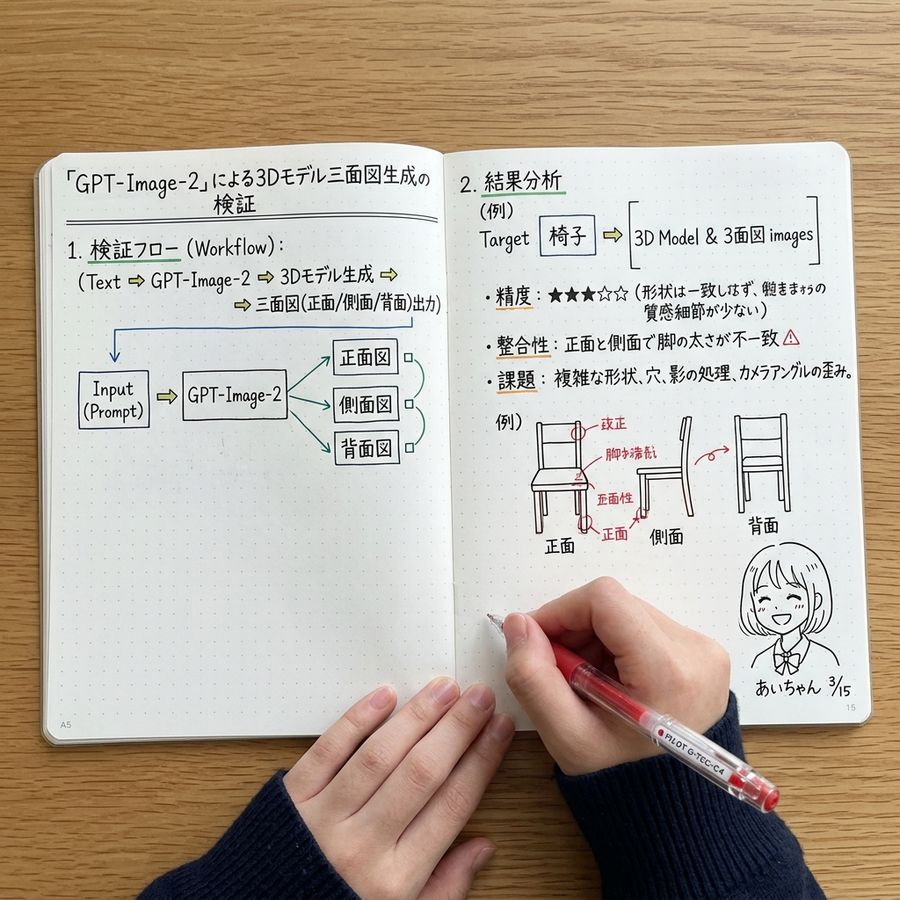 「GPT-Image-2」による3Dモデル三面図生成の
検証
1. 検証フロー (Workflow):
(Text ⇨ GPT-Image-2 ⇨ 3Dモデル生成 ⇨
⇨ 三面図(正面/側面/背面)出力)
Input
(Prompt)
GPT-Image-2
正面図
側面図
背面図
A5
2. 結果分析
(例)
Target 椅子 ⇨ [3D Model & 3面図 images]
・精度: ★★★☆☆ (形状は一致
質感細節が少ない)
・整合性: 正面と側面で脚の太さが不一致 ⚠
・課題: 複雑な形状、穴、影の処理、カメラアングルの歪み。
例)
改正
正面
正面
側面
背面
あいちゃん 3/15
15
PILOT G-TEC-C4